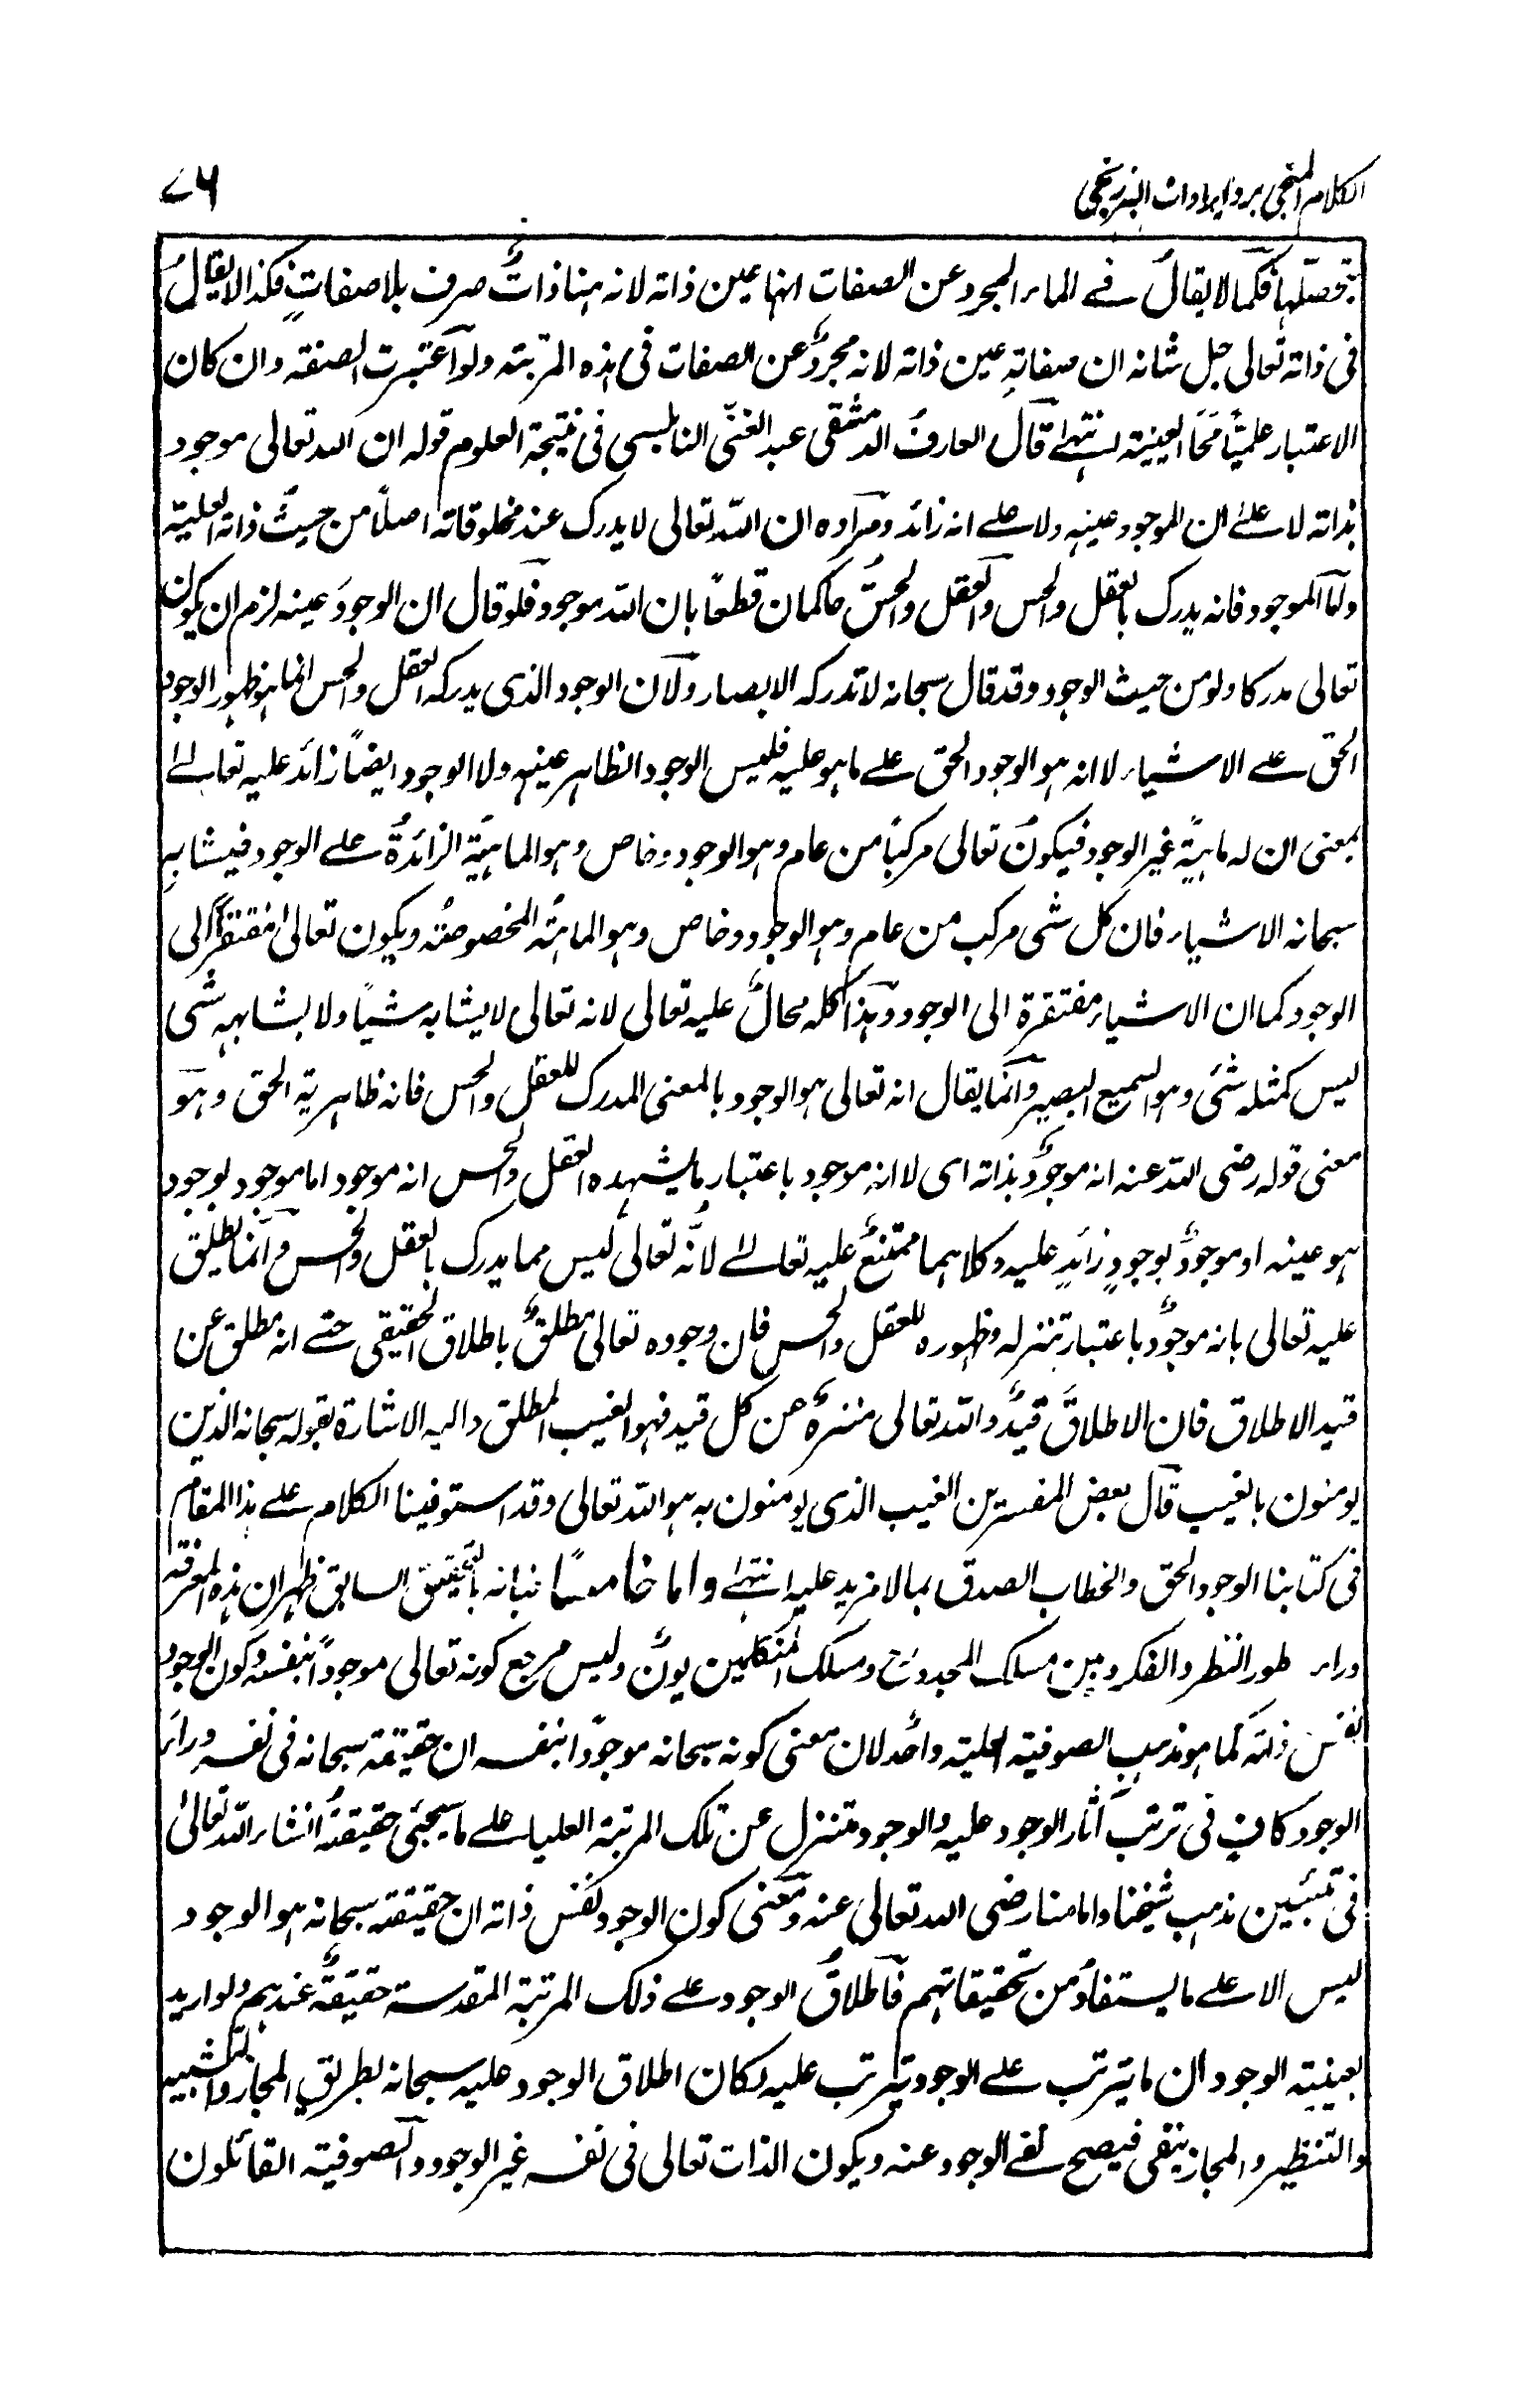 الكلام المنجي برد ايرادات البرزنجي
٧٦
بتحصلها فكما لا يقالُ في الماء المجرد عن الصفات انها عين ذاته لانه هنا ذاتٌ صرف بلا صفاتٍ فكذا لا يقالُ
في ذاته تعالى جل شانه ان صفاتِه عين ذاته لانه مجردٌ عن الصفات في هذه المرتبة ولو اعتبرت الصفة وان كان
الاعتبار علميًّا مَحَا العينية انتهى قال العارفُ الدمشقي عبد الغنيّ النابلسي في نتيجة العلوم قوله ان الله تعالى موجود
بذاته لا على ان الوجود عينه ولا على انه زائد ومراده ان الله تعالى لا يدرك عند مخلوقاته اصلًا من حيثُ ذاته العلية
واما الموجود فانه يدرك بالعقل والحس والعقل والحسُّ حاكمان قطعًا بان الله موجود فلو قال ان الوجودَ عينه لزم ان يكون
تعالى مدركا ولو من حيث الوجود وقد قال سبحانه لا تدركه الابصار ولان الوجود الذى يدركه العقل والحس انما هو ظهور الوجود
الحق على الاشياء لا انه هو الوجود الحق على ما هو عليه فليس الوجود الظاهر عينه ولا الوجود ايضًا زائد عليه تعالى
بمعنى ان له ماهيةً غير الوجود فيكونُ تعالى مركبًا من عام وهو الوجود وخاص وهو الماهيَّة الزائدةُ على الوجود فيشابهِ
سبحانه الاشياء فان كل شى مركب من عام وهو الوجود وخاص وهو الماهيَّة المخصوصةُ ويكون تعالى مفتقرًا الى
الوجود كما ان الاشياء مفتقرة الى الوجود وهذا كله محالٌ عليه تعالى لانه تعالى لا يشابه شيأً ولا يشابهه شى
ليس كمثله شئ وهو السميع البصير وانما يقال انه تعالى هو الوجود بالمعنى المدرك للعقل والحس فانه ظاهرية الحق وهو
معنى قوله رضى الله عنه انه موجودٌ بذاته اى لا انه موجود باعتبار ما يشهده العقل والحس انه موجود اما موجود بوجود
هو عينه او موجودٌ بوجودٍ زائدٍ عليه وكلاهما ممتنعٌ عليه تعالى لانَّه تعالى ليس مما يدرك بالعقل والحس وانما يطلق
عليه تعالى بانه موجودٌ باعتبار تنزله وظهوره للعقل والحس فان وجوده تعالى مطلقٌ باطلاق الحقيقي حتى انه مطلق عن
قيد الاطلاق فان الاطلاقَ قيدٌ والله تعالى منزهٌ عن كل قيد فهو الغيب المطلق واليه الاشارة بقوله سبحانه الذين
يومنون بالغيب قال بعض المفسرين الغيب الذى يومنون به هو الله تعالى وقد استوفينا الكلام على هذا المقام
في كتابنا الوجود الحق والخطاب الصدق بما لا مزيد عليه انتهى واما خامسًا فبانه بالتحقيق السابق ظهر ان هذه المعرفة
وراء طور النظر والفكر وبين مسلك المجدد رح ومسلك المتكلمين بونٌ وليس مرجع كونه تعالى موجودًا بنفسه وكون الوجود
نفس ذاته كما هو مذهب الصوفية العلية واحد لان معنى كونه سبحانه موجودًا بنفسه ان حقيقة سبحانه في نفسه وراءَ
الوجود كافٍ في ترتب آثار الوجود عليه والوجود متنزل عن تلك المرتبة العليا على ما سيجئى حقيقةُ انشاء الله تعالى
في تبيين مذهب شيخنا وامامنا رضى الله تعالى عنه ومعنى كون الوجود نفس ذاته ان حقيقة سبحانه هو الوجود
ليس الا على ما يستفادُ من تحقيقاتهم فاطلاقُ الوجود على ذلك المرتبة المقدسة حقيقةٌ عندهم ولو اريد
بعينية الوجود ان ما يترتب على الوجود يترتب عليه لكان اطلاق الوجود عليه سبحانه بطريق المجاز والتشبيه
والتنظير والمجاز ينفى فيصح نفى الوجود عنه ويكون الذات تعالى في نفسه غير الوجود والصوفية القائلون